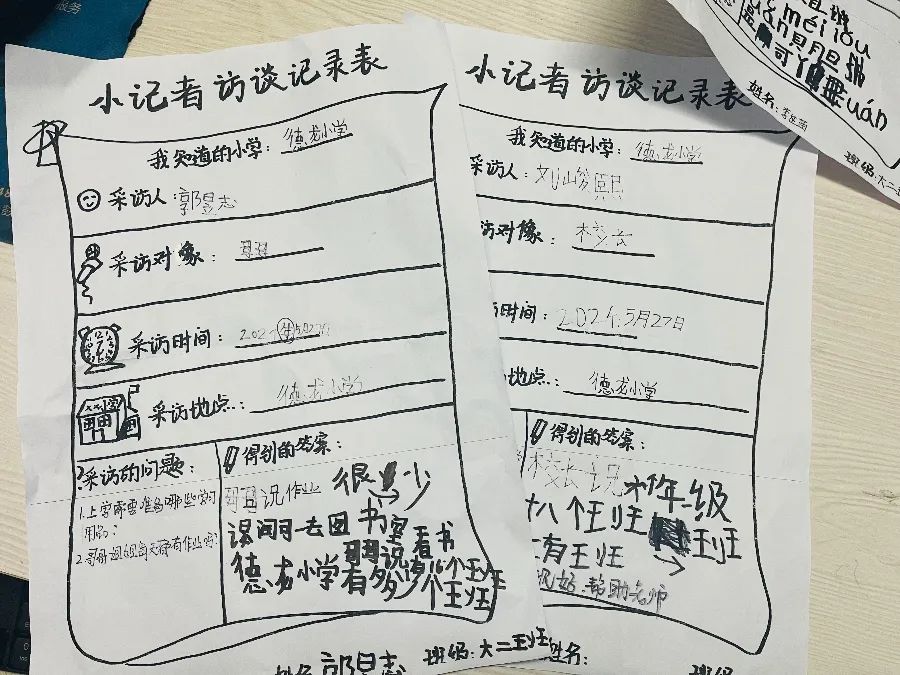 小记者访谈记录表
我知道的小学：德龙小学
采访人：郭昱志
采访对像：哥哥
采访时间：2021年5月27日
采访地点：德龙小学
采访的问题：
1.上学需要准备哪些学习
用品？
2.哥哥姐姐每天都有作业吗？
得到的答案：
哥哥说作业很少
课间可去图书室看书
德龙小学哥哥说
有多少个班
姓名 郭昱志
班级：大二班
小记者访谈记录表
我知道的小学：德龙小学
采访人：刘
访对像：校长
时间：2021.5月27日
地点：德龙小学
得到的答案：
校长说 六年级
十八个班 班
有 班
帮助老师
姓名：
班级
méi
可
姓名：
班级：大二